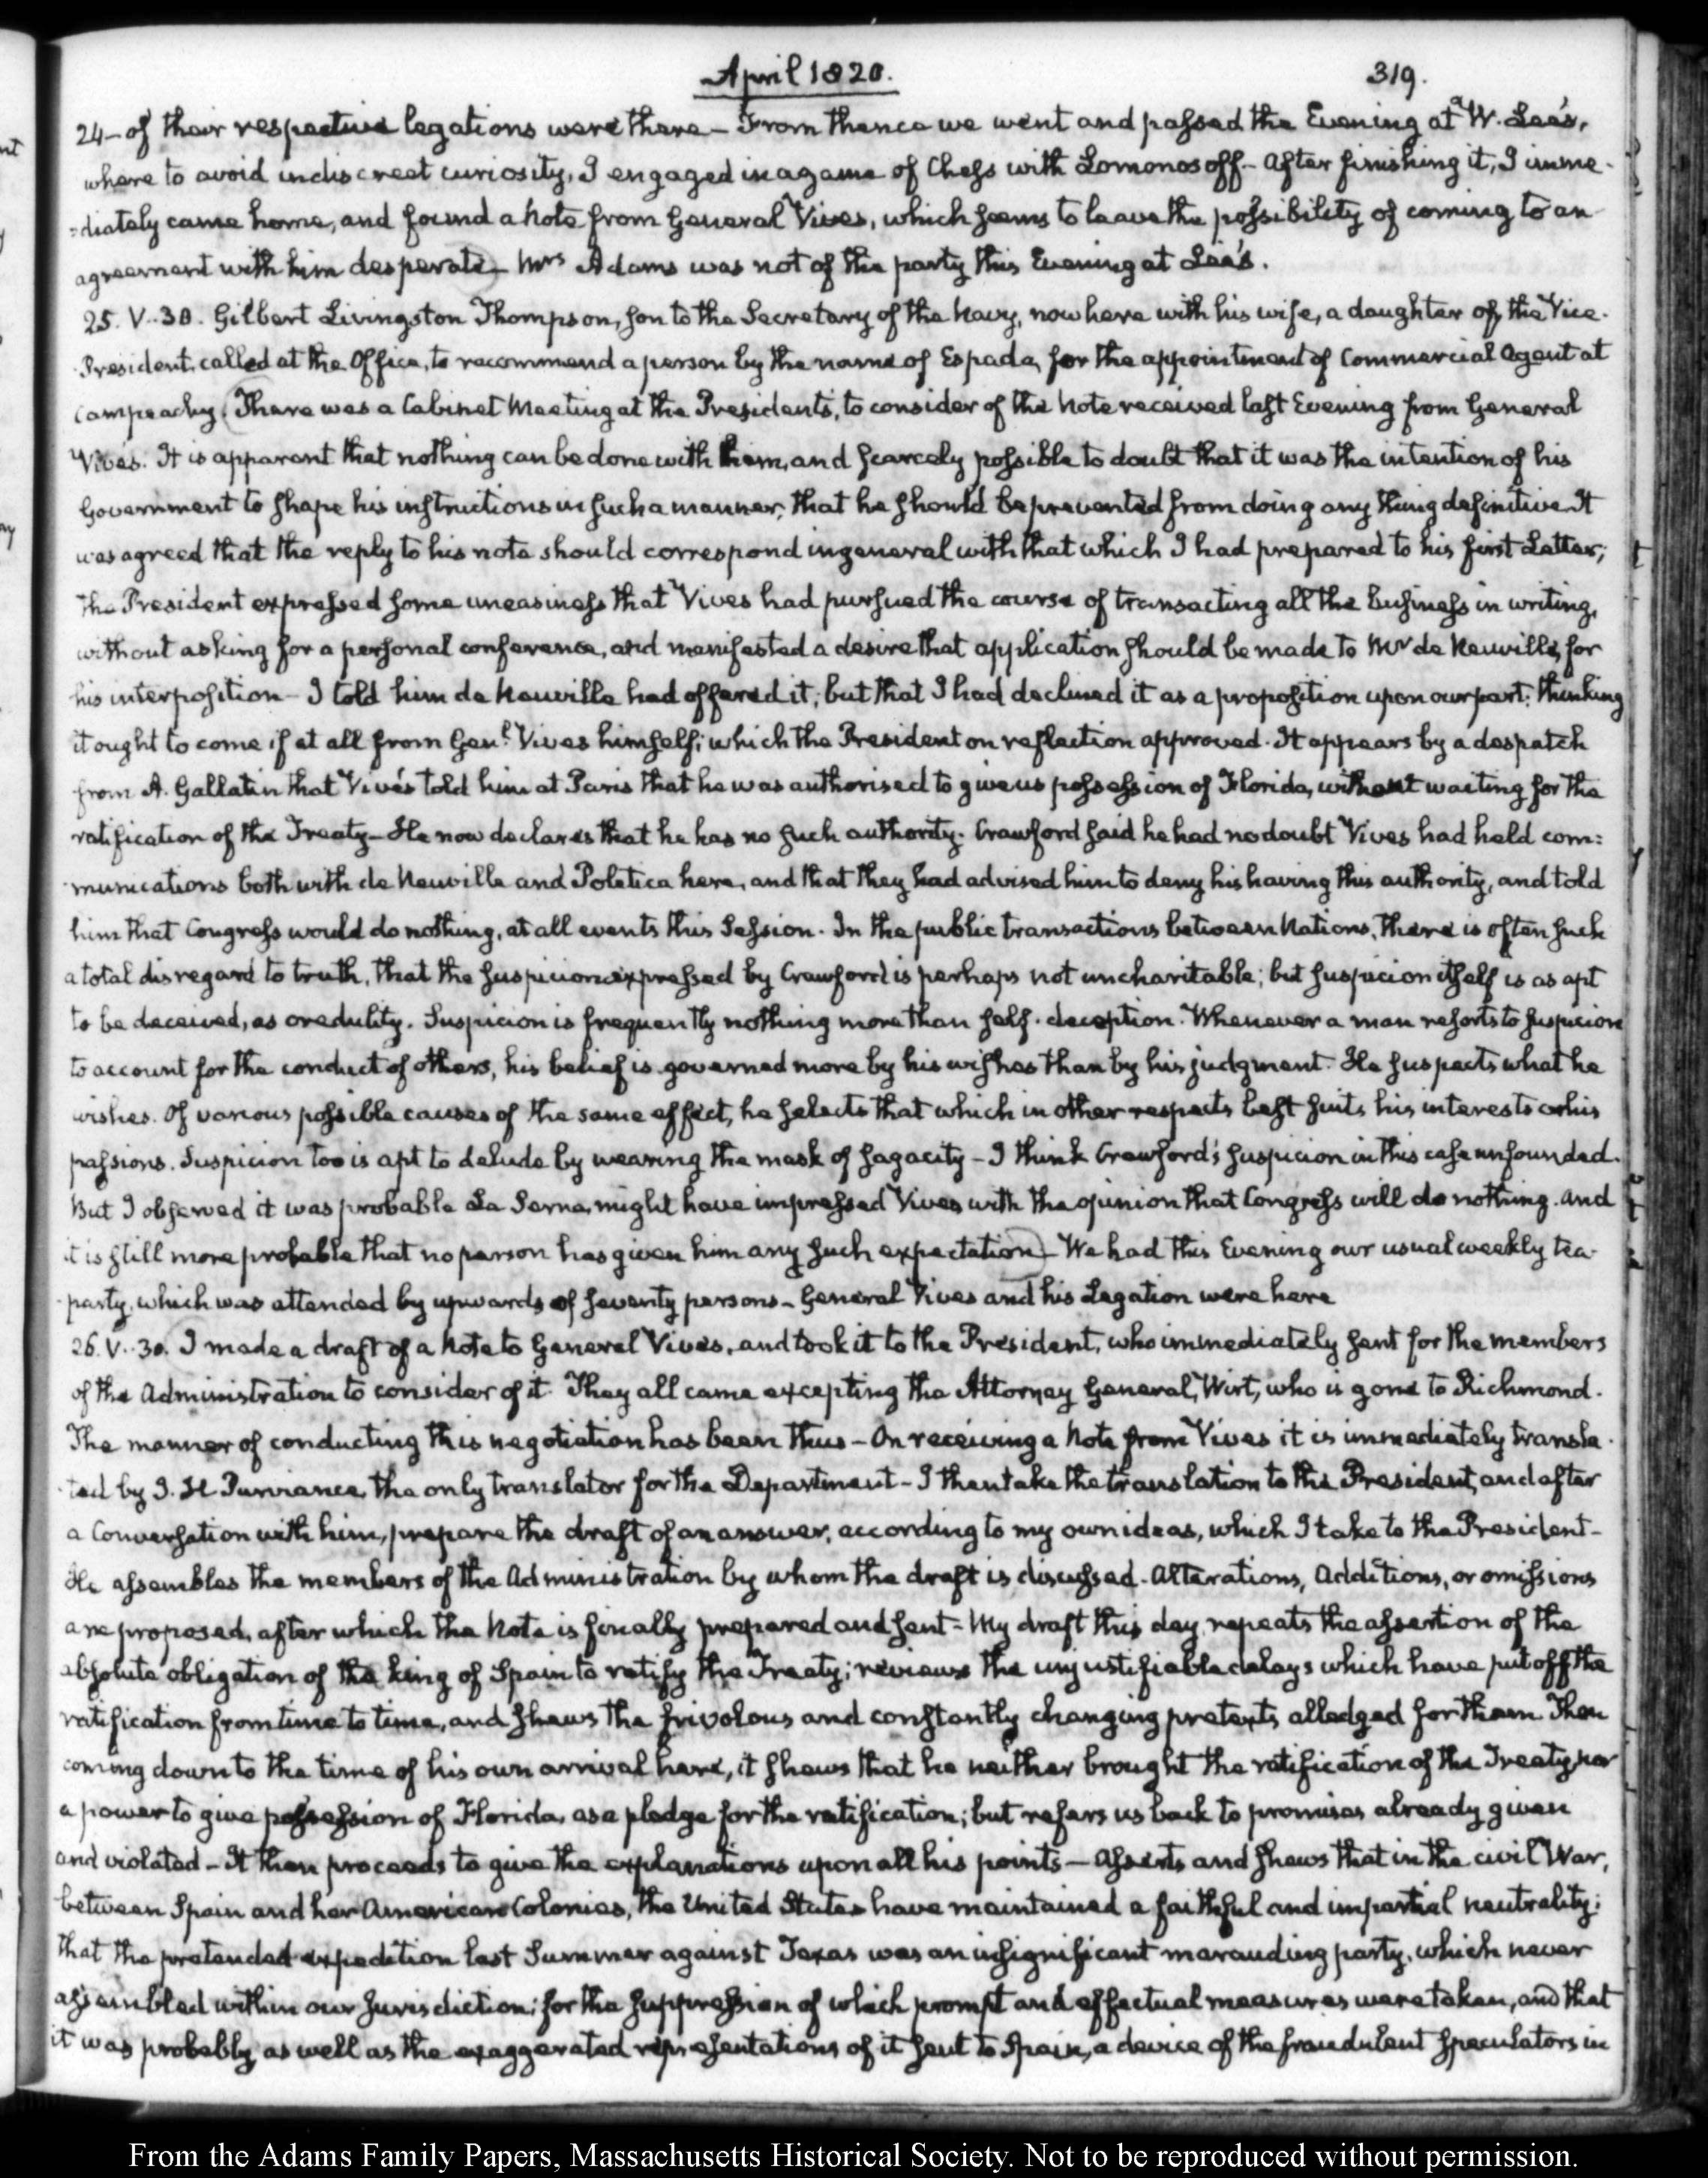 April 1820.
319.
24 – of their respective legations were there – From thence we went and passed the Evening at W. Lee's,
where to avoid indiscreet curiosity, I engaged in a game of Chess with Lomonosoff – After finishing it, I imme-
-diately came home, and found a Note from General Vives, which seems to leave the possibility of coming to an
agreement with him desperate – Mrs Adams was not of the party this Evening at Lee's.
25. V..30. Gilbert Livingston Thompson, son to the Secretary of the Navy, now here with his wife, a daughter of the Vice-
President, called at the Office, to recommend a person by the name of Espada, for the appointment of Commercial Agent at
Campeachy. There was a Cabinet Meeting at the President's, to consider of the Note received last Evening from General
Vives. It is apparent that nothing can be done with him, and scarcely possible to doubt that it was the intention of his
Government to shape his instructions in such a manner, that he should be prevented from doing any thing definitive. It
was agreed that the reply to his note should correspond in general with that which I had prepared to his first Letter;
The President expressed some uneasiness that Vives had pursued the course of transacting all the business in writing,
without asking for a personal conference, and manifested a desire that application should be made to Mr de Neuville, for
his interposition – I told him de Neuville had offered it; but that I had declined it as a proposition upon our part: thinking
it ought to come if at all from Genl. Vives himself; which the President on reflection approved. It appears by a despatch
from A. Gallatin that Vivés told him at Paris that he was authorised to give us possession of Florida, without waiting for the
ratification of the Treaty – He now declares that he has no such authority. Crawford said he had no doubt Vives had held com:
-munications both with de Neuville and Poletica here, and that they had advised him to deny his having this authority, and told
him that Congress would do nothing, at all events this Session. In the public transactions between Nations, there is often such
a total disregard to truth, that the suspicion expressed by Crawford is perhaps not uncharitable; but suspicion itself is as apt
to be deceived, as credulity. Suspicion is frequently nothing more than self-deception. Whenever a man resorts to suspicion
to account for the conduct of others, his belief is governed more by his wishes than by his judgment. He suspects what he
wishes. Of various possible causes of the same effect, he selects that which in other respects best suits his interests or his
passions. Suspicion too is apt to delude by wearing the mask of sagacity – I think Crawford's suspicion in this case unfounded.
But I observed it was probable La Serna, might have impressed Vives with the opinion that Congress will do nothing. And
it is still more probable that no person has given him any such expectation – We had this Evening our usual weekly tea-
party, which was attended by upwards of seventy persons – General Vives and his Legation were here
26. V..30. I made a draft of a Note to General Vives, and took it to the President, who immediately sent for the members
of the Administration to consider of it. They all came excepting the Attorney General, Wirt, who is gone to Richmond.
The manner of conducting this negotiation has been thus – On receiving a Note from Vives it is immediately transla-
-ted by J. H Purviance, the only translator for the Department – I then take the translation to the President, and after
a Conversation with him, prepare the draft of an answer, according to my own ideas, which I take to the President –
He assembles the members of the Administration by whom the draft is discussed. Alterations, Additions, or omissions
are proposed, after which the Note is finally prepared and sent – My draft this day, repeats the assertion of the
absolute obligation of the king of Spain to ratify the Treaty; reviews the unjustifiable delays which have put off the
ratification from time to time, and shews the frivolous and constantly changing pretexts alledged for them. Then
coming down to the time of his own arrival here, it shews that he neither brought the ratification of the Treaty, nor
a power to give possession of Florida, as a pledge for the ratification; but refers us back to promises already given
and violated – It then proceeds to give the explanations upon all his points – Asserts and shews that in the civil War,
between Spain and her American Colonies, the United States have maintained a faithful and impartial neutrality;
that the pretended expedition last Summer against Texas was an insignificant marauding party, which never
assembled within our Jurisdiction; for the suppression of which prompt and effectual measures were taken, and that
it was probably, as well as the exaggerated representations of it sent to Spain, a device of the fraudulent speculators in
From the Adams Family Papers, Massachusetts Historical Society. Not to be reproduced without permission.